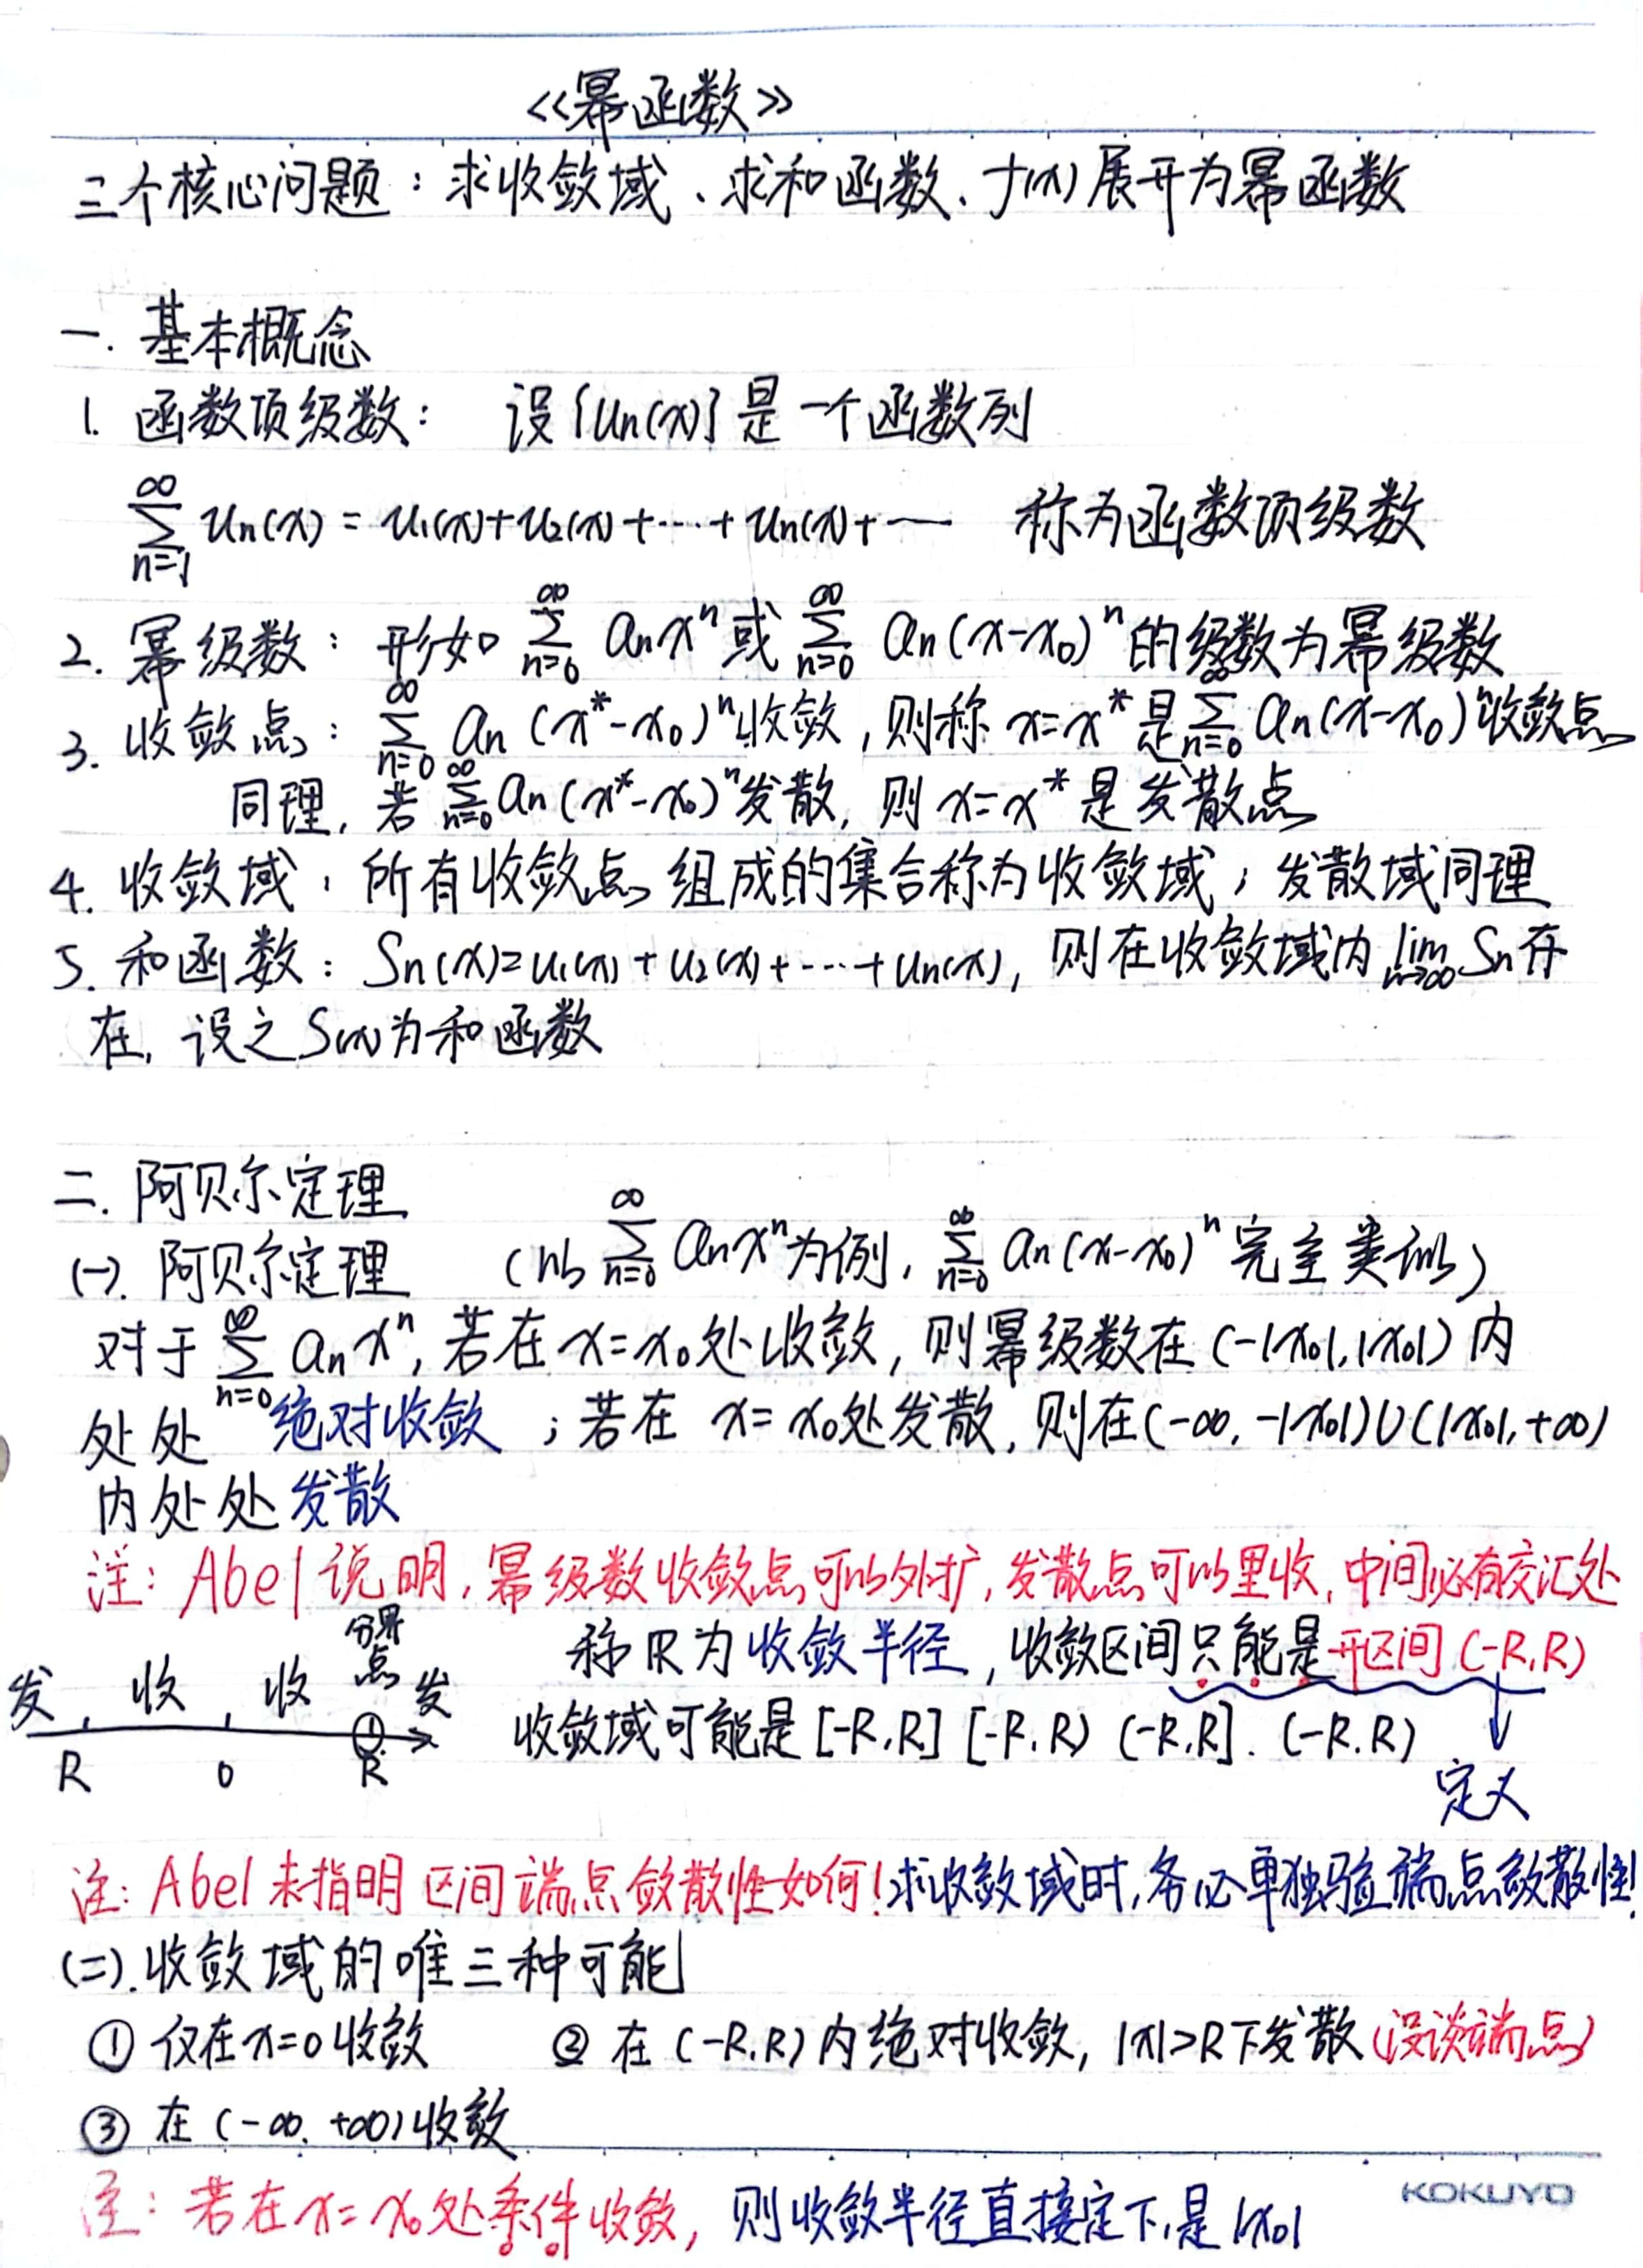 《幂函数》
三个核心问题：求收敛域、求和函数、f(x)展开为幂函数
一. 基本概念
1. 函数项级数： 设{Un(x)}是一个函数列
∑_{n=1}^{∞} Un(x) = U₁(x)+U₂(x)+⋯+Un(x)+⋯ 称为函数项级数
2. 幂级数：形如 ∑_{n=0}^{∞} anxⁿ 或 ∑_{n=0}^{∞} an(x-x₀)ⁿ 的级数为幂级数
3. 收敛点：∑_{n=0}^{∞} an(x*-x₀)ⁿ收敛，则称 x=x* 是∑_{n=0}^{∞} an(x-x₀)ⁿ收敛点
同理，若 ∑_{n=0}^{∞} an(x*-x₀)ⁿ发散，则 x=x* 是发散点
4. 收敛域：所有收敛点组成的集合称为收敛域；发散域同理
5. 和函数：Sn(x)=U₁(x)+U₂(x)+⋯+Un(x)，则在收敛域内 lim_{n→∞} Sn存
在，设之S(x)为和函数
二. 阿贝尔定理
(一). 阿贝尔定理 （以 ∑_{n=0}^{∞} anxⁿ为例，∑_{n=0}^{∞} an(x-x₀)ⁿ 完全类似）
对于 ∑_{n=0}^{∞} anxⁿ，若在 x=x₀处收敛，则幂级数在 (-|x₀|,|x₀|) 内
处处 绝对收敛；若在 x=x₀处发散，则在(-∞,-|x₀|)∪(|x₀|,+∞)
内处处发散
注：Abel 说明，幂级数收敛点可以外扩，发散点可以里收，中间必有交汇处
称R为收敛半径，收敛区间只能是开区间 (-R,R)
分界点
发 收 收 发
R 0 ① R
收敛域可能是 [-R,R] [-R,R) (-R,R]. (-R,R)
定义
注：Abel 未指明区间端点敛散性如何！求收敛域时，务必单独验端点敛散性！
(二). 收敛域的唯三种可能
① 仅在x=0收敛 ② 在 (-R,R) 内绝对收敛，|x|>R下发散（没谈端点）
③ 在 (-∞,+∞)收敛
注：若在x=x₀处条件收敛，则收敛半径直接定下，是|x₀|
KOKUYO